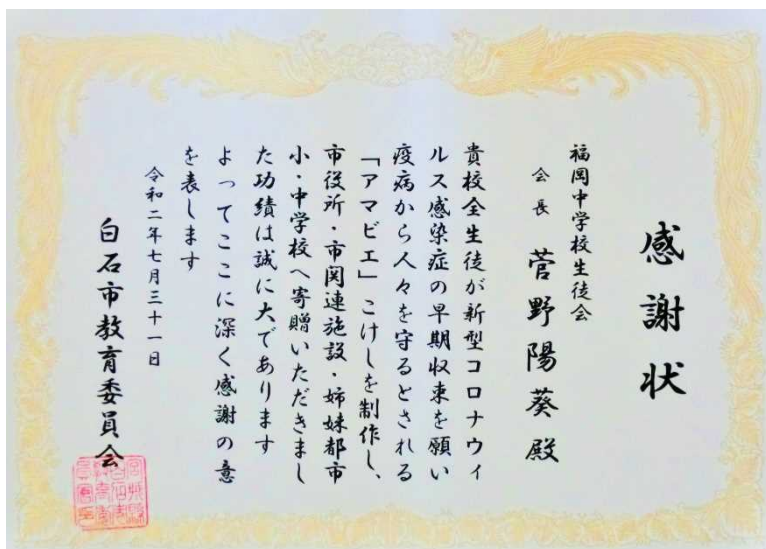 感謝状
福岡中学校生徒会
会長 菅野陽葵殿
貴校全生徒が新型コロナウィ
ルス感染症の早期収束を願い
疫病から人々を守るとされる
「アマビエ」こけしを制作し、
市役所・市関連施設・姉妹都市
小・中学校へ寄贈いただきまし
た功績は誠に大であります
よってここに深く感謝の意
を表します
令和二年七月三十一日
白石市教育委員会